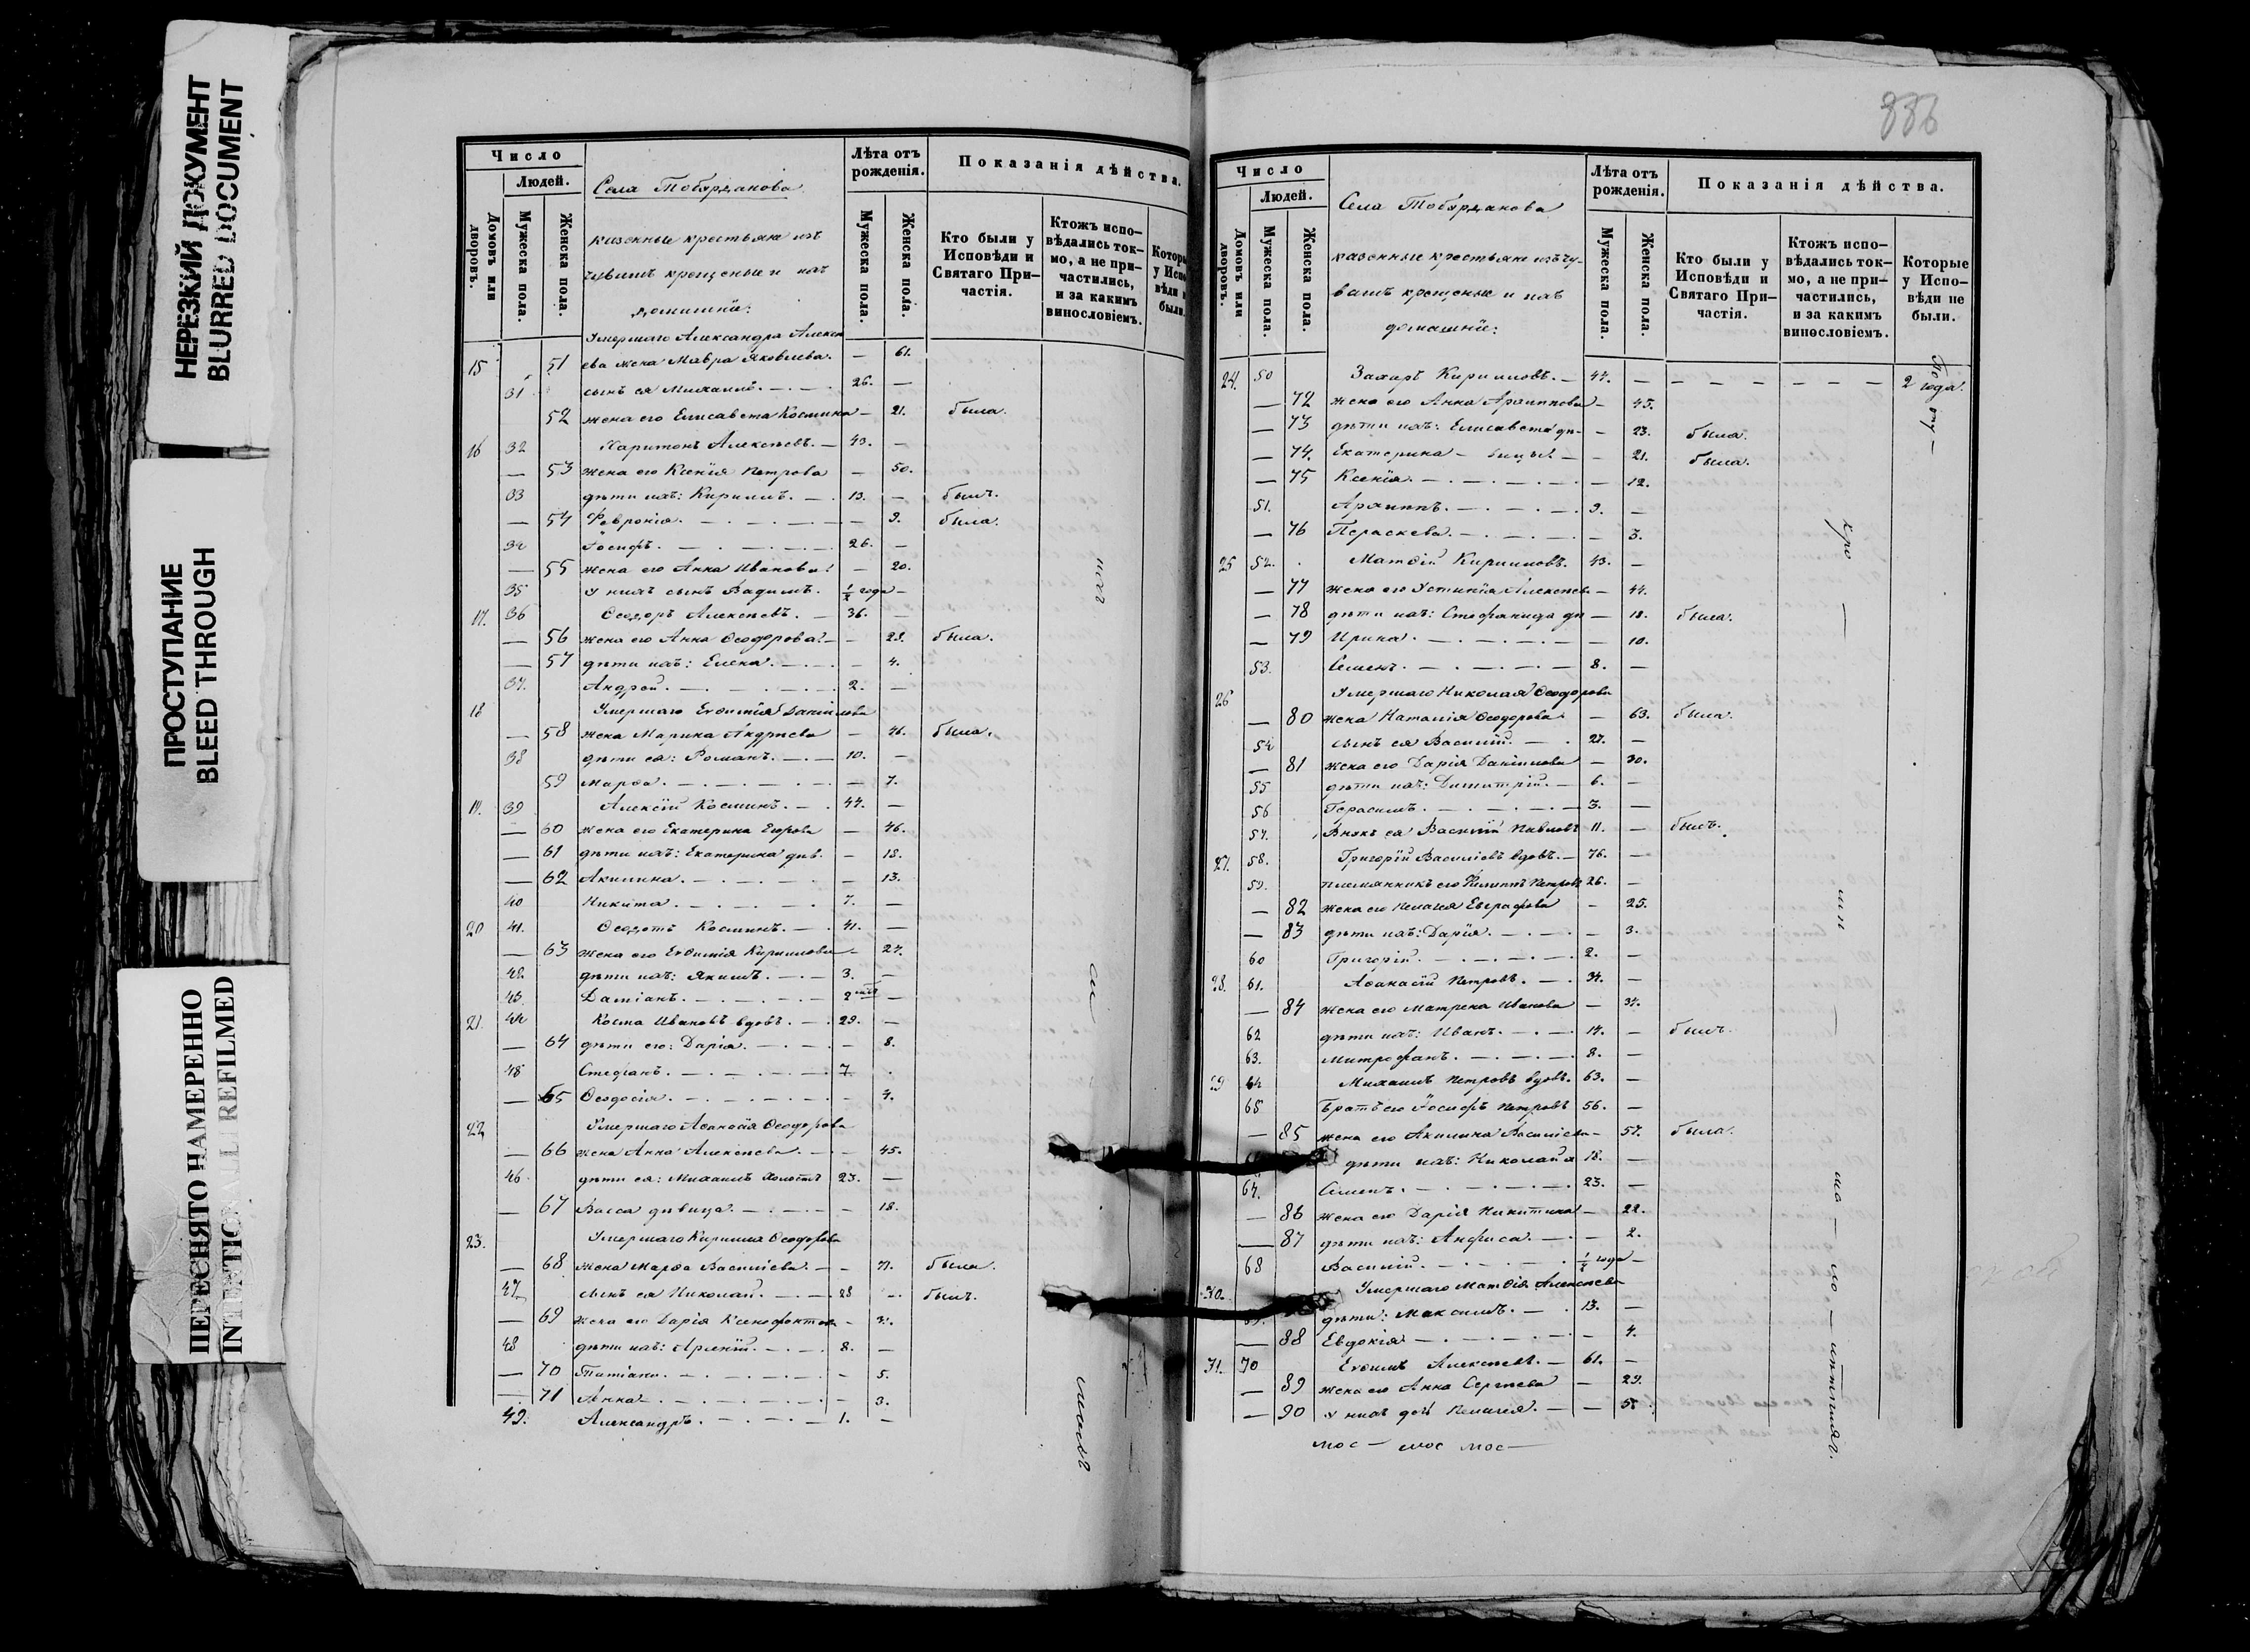 НЕРЕЗКИЙ ДОКУМЕНТ
BLURRED DOCUMENT
ПРОСТУПАНИЕ
BLEED THROUGH
ПЕРЕСНЯТО НАМЕРЕННО
INTENTIONALLI REFILMED
Число
Людей.
Домовъ или дворовъ.
Мужеска пола.
Женска пола.
Села Тобурданова
казенные крестьяне изъ
чувашъ крещеные и ихъ
домашнiе:
Лѣта отъ рожденiя.
Мужеска пола.
Женска пола.
Показанiя дѣйства.
Кто были у Исповѣди и Святаго Причастiя.
Ктожъ исповѣдались токмо, а не причастились, и за какимъ винословiемъ.
Умершаго Александра Алексѣ
15 51 ева жена Мавра Яковлева. — 61.
31 сынъ ея Михаилъ. 26. —
52 жена его Елисавета Космина — 21. была.
16 32 Харитонъ Алексѣевъ. 43. —
— 53 жена его Ксенiя Петрова — 50.
33 дѣти ихъ: Кириллъ. 13. — былъ.
— 54 Февронiя. — 9. была.
34 Iосифъ. 26. —
— 55 жена его Анна Иванова — 20.
35 у нихъ сынъ Вадимъ. ½ года —
17. 36 Ѳеодоръ Алексѣевъ. 36. —
— 56 жена его Анна Ѳеодорова — 29. была.
— 57 дѣти ихъ: Елена. — 4.
37. Андрей. 2. —
18 Умершаго Евѳимiя Данилова
— 58 жена Марина Андреева — 46. была.
38 дѣти ея: Романъ. 10. —
59 Марѳа. — 7.
19. 39 Алексiй Косминъ. 44. —
— 60 жена его Екатерина Егорова — 46.
— 61 дѣти ихъ: Екатерина дѣв. — 18.
— 62 Акилина. — 13.
40 Никита. 7. —
20 41. Ѳеодотъ Косминъ. 41. —
— 63 жена его Евѳимiя Кириллова — 24.
42 дѣти ихъ: Якимъ. 3. —
43. Дамiанъ. 2 —
21. 44 Косма Ивановъ вдовъ. 29. —
— 64 дѣти его: Дарiя. — 8.
45 Стефанъ. 7.
— 65 Ѳеодосiя. — 4.
22 Умершаго Аѳанасiя Ѳеодорова
— 66 жена Анна Алексѣева. — 45.
46 дѣти ея: Михаилъ холостъ 23. —
— 67 Васса дѣвица. — 18.
23. Умершаго Кирилла Ѳеодорова
— 68 жена Марѳа Васильева. — была.
47 сынъ ея Николай. 28 — былъ.
— 69 жена его Дарiя Ксенофонтова
48 дѣти ихъ: Арсенiй. 8. —
— 70 Татiана. — 5.
— 71 Анна — 3.
49. Александръ. 1. —
Число
Людей.
Домовъ или дворовъ.
Мужеска пола.
Женска пола.
Села Тобурданова
казенные крестьяне изъ чу-
вашъ крещеные и ихъ
домашнiе:
Лѣта отъ рожденiя.
Мужеска пола.
Женска пола.
Показанiя дѣйства.
Кто были у Исповѣди и Святаго Причастiя.
Ктожъ исповѣдались токмо, а не причастились, и за какимъ винословiемъ.
Которые у Исповѣди не были.
24. 50 Захаръ Кирилловъ. 47. — 2 года.
— 72 жена его Анна Архиппова — 45.
— 73 дѣти ихъ: Елисавета дѣ- — 23. была.
— 74. Екатерина — вицы — 21. была.
— 75 Ксенiя. — 12.
51. Архиппъ. 9. —
— 76 Параскева. — 3.
25 52. Матѳiй Кирилловъ. 43. —
— 77 жена его Устинiя Алексѣева — 44.
— 78 дѣти ихъ: Стефанида дѣ — 18. была.
— 79 Ирина. — 10.
53. Семенъ. 8. —
26 Умершаго Николая Ѳеодорова
— 80 жена Наталiя Ѳеодорова — 63. была.
54 сынъ ея Василiй. 27. —
— 81 жена его Дарiя Данилова — 30.
55 дѣти ихъ: Димитрiй. 6. —
56 Герасимъ. 3. —
57. Внукъ ея Василiй Павловъ 11. — былъ.
27. 58. Григорiй Васильевъ вдовъ. 76. —
59. племянникъ его Филиппъ Петровъ 26. —
— 82 жена его Пелагея Евграфова — 25.
— 83 дѣти ихъ: Дарiя. — 3.
60 Григорiй. 2. —
28. 61. Аѳанасiй Петровъ. 34. —
— 84 жена его Матрена Иванова — 34.
62 дѣти ихъ: Иванъ. 14. — былъ.
63. Митрофанъ. 8. —
29 64 Михаилъ Петровъ вдовъ. 63. —
65 Братъ его Iосифъ Петровъ 56. —
— 85 жена его Акилина Васильева — 57. была.
дѣти ихъ: Николай 18. —
67. Семенъ. 23. —
— 86 жена его Дарiя Никитина — 22.
— 87 дѣти ихъ: Анфиса. — 2.
68 Василiй. года —
30. Умершаго Матѳiя Алексѣева
69. дѣти: Максимъ. 13. —
— 88 Евдокiя — 4.
31. 70 Евѳимъ Алексѣевъ. 61. —
— 89 жена его Анна Сергѣева — 29.
— 90 у нихъ дочь Пелагея. — 5.